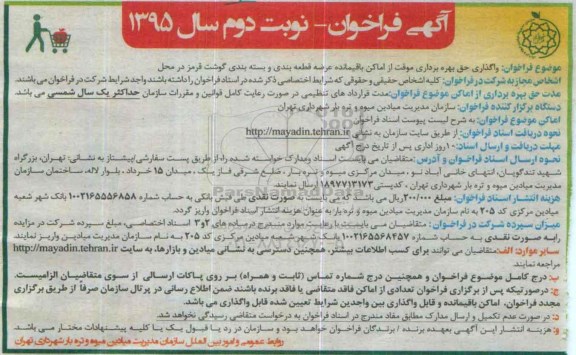 آگهی فراخوان - نوبت دوم سال ۱۳۹۵
موضوع فراخوان: واگذاری حق بهره برداری موقت از اماکن باقیمانده عرضه قطعه بندی و بسته بندی گوشت قرمز در محل
اشخاص مجاز به شرکت در فراخوان: کلیه اشخاص حقیقی و حقوقی که شرایط اختصاصی ذکر شده در اسناد فراخوان را داشته باشند و واجد شرایط شرکت در فراخوان می باشند.
مدت حق بهره برداری از اماکن موضوع فراخوان: مدت قرارداد های تنظیمی در صورت رعایت کامل قوانین و مقررات سازمان حداکثر یک سال شمسی می باشد.
دستگاه برگزار کننده فراخوان: سازمان مدیریت میادین میوه و تره بار شهرداری تهران
اماکن موضوع فراخوان: به شرح لیست پیوست اسناد فراخوان
نحوه دریافت اسناد فراخوان: از طریق سایت سازمان به نشانی http://mayadin.tehran.ir
مهلت دریافت و ارسال اسناد: ۱۰ روز اداری پس از تاریخ درج آگهی
نحوه ارسال اسناد فراخوان و آدرس: متقاضیان می بایست اسناد ومدارک خواسته شده را، از طریق پست سفارشی/پیشتاز به نشانی: تهران، بزرگراه
شهید تندگویان، انتهای خانی آباد نو، میدان مرکزی میوه و تره بار، ضلع شرقی فاز یک، میدان ۱۵ خرداد، بلوار لاله، ساختمان سازمان
مدیریت میادین میوه و تره بار شهرداری تهران، کدپستی ۱۸۹۷۷۱۳۱۷۳ ارسال نمایند.
هزینه انتشار اسناد فراخوان: مبلغ ۲۰۰/۰۰۰ ریال می باشد که می بایست به صورت نقدی طی فیش بانکی به حساب شماره ۱۰۰۲۱۶۵۵۵۶۸۵۸ بانک شهر شعبه
میادین مرکزی کد ۲۰۵ به نام سازمان مدیریت میادین میوه و تره بار به عنوان هزینه انتشار اسناد فراخوان واریز گردد.
میزان سپرده شرکت در فراخوان: متقاضیان می بایست با رعایت موارد مندرج در ماده های ۲و۳ اسناد اختصاصی، مبلغ سپرده شرکت در مزایده
را به صورت نقدی به حساب شماره ۱۰۰۲۱۶۵۵۶۸۴۵۷ بانک شهر شعبه میادین مرکزی کد ۲۰۵ به نام سازمان مدیریت میادین واریز نمایند.
سایر موارد: الف: متقاضیان می توانند برای کسب اطلاعات بیشتر، همچنین دسترسی به نشانی میادین و بازارها، به سایت http://mayadin.tehran.ir
مراجعه نمایند.
ب: درج کامل موضوع فراخوان و همچنین درج شماره تماس (ثابت و همراه) بر روی پاکات ارسالی از سوی متقاضیان الزامیست.
ج: درصورتیکه پس از برگزاری فراخوان تعدادی از اماکن فاقد متقاضی یا فاقد برنده باشند ضمن اطلاع رسانی در پرتال سازمان صرفاً از طریق برگزاری
مجدد فراخوان، اماکن باقیمانده و قابل واگذاری بین واجدین شرایط تعیین شده قابل واگذاری می باشد.
د: در صورت عدم تکمیل و ارسال مدارک مطابق مفاد مندرج در اسناد فراخوان به درخواست متقاضی رسیدگی نخواهد شد.
و: هزینه انتشار این آگهی بعهده برنده / برندگان فراخوان خواهد بود و سازمان در رد یا قبول یک یا کلیه پیشنهادات مختار می باشد.
روابط عمومی و امور بین الملل سازمان مدیریت میادین میوه و تره بار شهرداری تهران